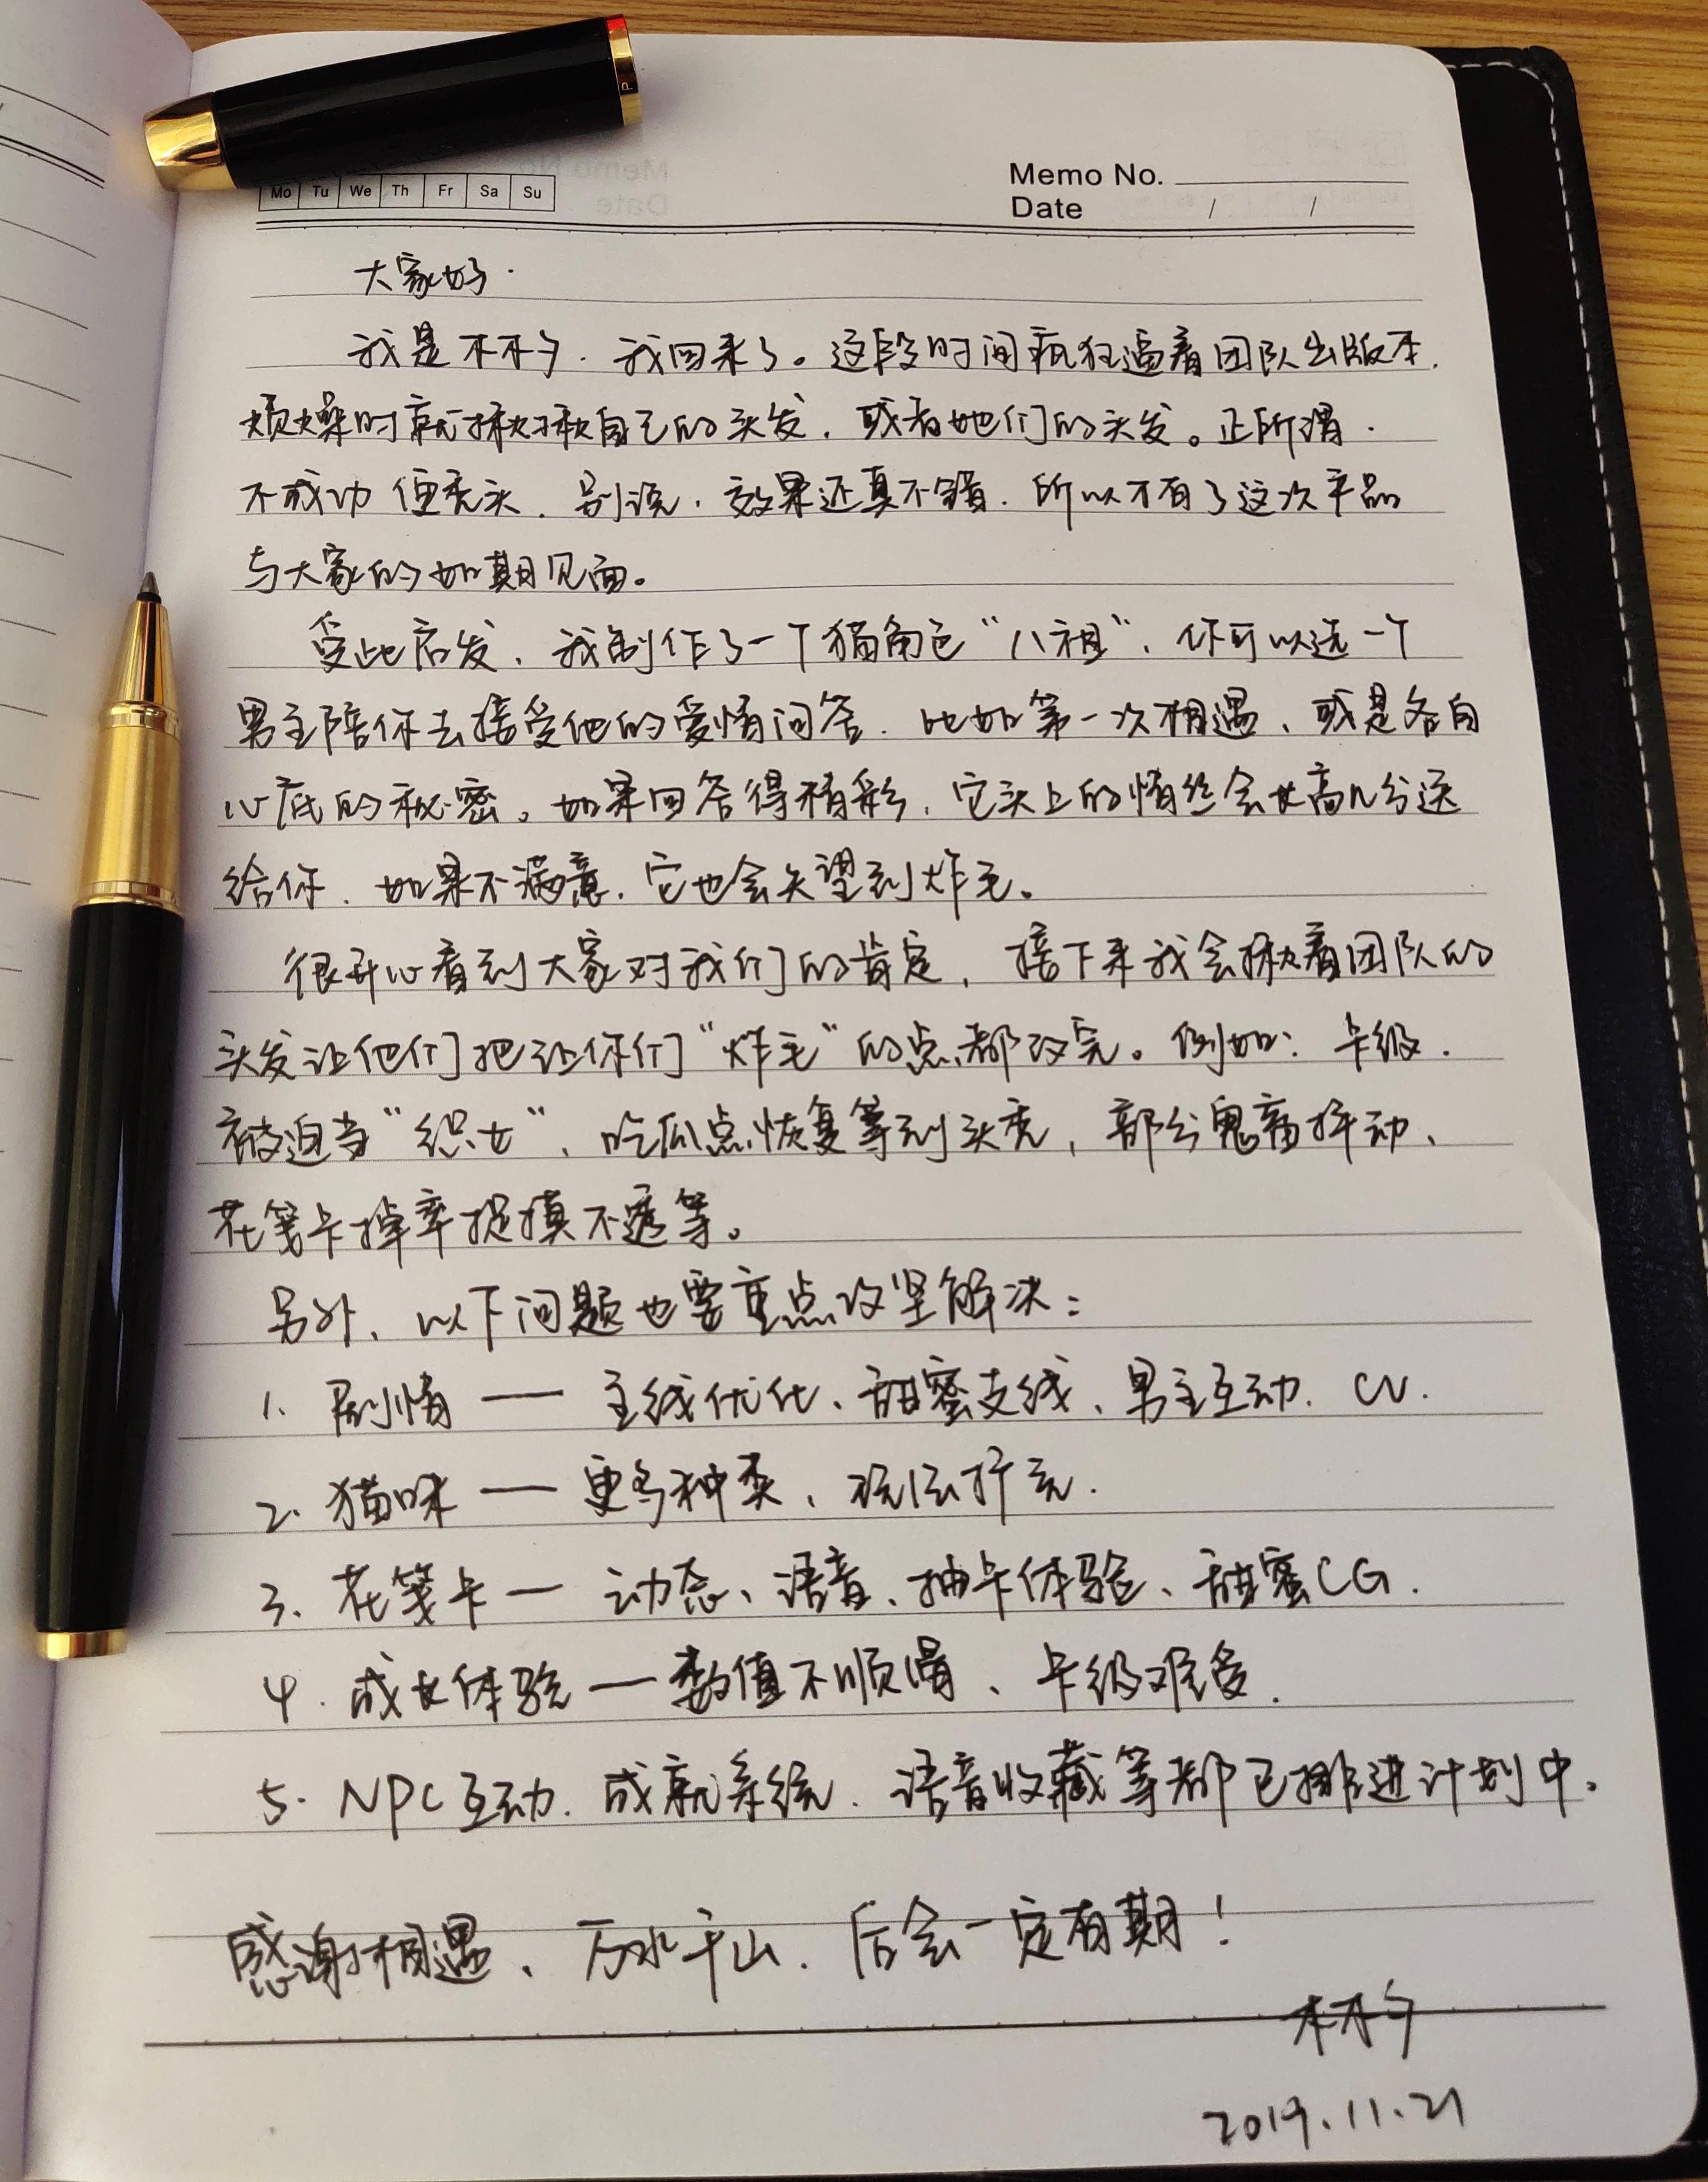 Mo Tu We Th Fr Sa Su
Memo No.
Date / /
大家好.
我是木木夕.我回来了。这段时间疯狂逼着团队出版本.
烦燥时就揪揪自己的头发.或者她们的头发。正所谓.
不成功便秃头.别说.效果还真不错.所以才有了这次产品
与大家的如期见面。
受此启发,我制作了一个猫角色“八祖”,你可以选一个
男主陪你去接受他的爱情问答.比如第一次相遇、或是各自
心底的秘密。如果回答得精彩,它头上的情丝会长高几分送
给你.如果不满意.它也会失望到炸毛。
很开心看到大家对我们的肯定,接下来我会揪着团队的
头发让他们把让你们“炸毛”的点都改完。例如:卡级.
被迫当“织女”、吃瓜点恢复等到头秃,部分鬼畜抖动、
花笺卡掉率捉摸不透等。
另外、以下问题也要重点攻坚解决:
1. 剧情 — 主线优化、甜蜜支线、男主互动. CV.
2. 猫咪 — 更多种类、玩法扩充.
3. 花笺卡 — 动态、语音、抽卡体验、甜蜜CG.
4. 成长体验 — 数值不顺滑、卡级难受.
5. NPC互动.成就系统.语音收藏等都已排进计划中。
感谢相遇、万水千山.后会一定有期!
木木夕
2019.11.21